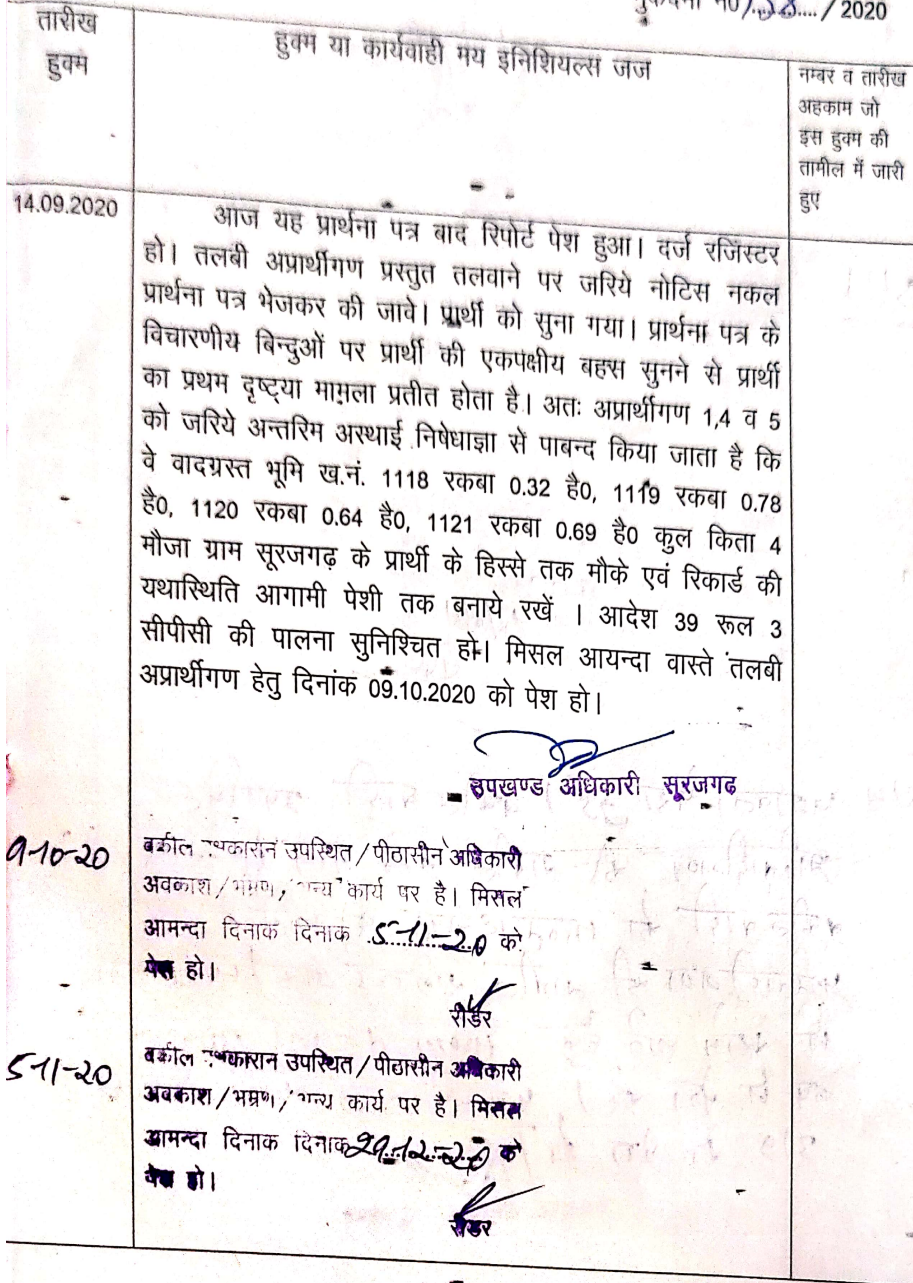 / 2020
तारीख
हुक्म
हुक्म या कार्यवाही मय इनिशियल्स जज
नम्बर व तारीख
अहकाम जो
इस हुक्म की
तामील में जारी
हुए
14.09.2020
आज यह प्रार्थना पत्र बाद रिपोर्ट पेश हुआ। दर्ज रजिस्टर
हो। तलबी अप्रार्थीगण प्रस्तुत तलवाने पर जरिये नोटिस नकल
प्रार्थना पत्र भेजकर की जावे। प्रार्थी को सुना गया। प्रार्थना पत्र के
विचारणीय बिन्दुओं पर प्रार्थी की एकपक्षीय बहस सुनने से प्रार्थी
का प्रथम दृष्ट्या मामला प्रतीत होता है। अतः अप्रार्थीगण 1,4 व 5
को जरिये अन्तरिम अस्थाई निषेधाज्ञा से पाबन्द किया जाता है कि
वे वादग्रस्त भूमि ख.नं. 1118 रकबा 0.32 है0, 1119 रकबा 0.78
है0, 1120 रकबा 0.64 है0, 1121 रकबा 0.69 है0 कुल किता 4
मौजा ग्राम सूरजगढ़ के प्रार्थी के हिस्से तक मौके एवं रिकार्ड की
यथास्थिति आगामी पेशी तक बनाये रखें । आदेश 39 रूल 3
सीपीसी की पालना सुनिश्चित हो। मिसल आयन्दा वास्ते तलबी
अप्रार्थीगण हेतु दिनांक 09.10.2020 को पेश हो।
उपखण्ड अधिकारी सूरजगढ
9-10-20
वकील उपस्थित/पीठासीन अधिकारी
अवकाश/भम्रण/ कार्य पर है। मिसल
आमन्दा दिनाक दिनाक 5-11-20 को
पेस हो।
रीडर
5-11-20
वकील उपस्थित/पीठासीन अधिकारी
अवकाश/भम्रण/ कार्य पर है। मिसल
आमन्दा दिनाक दिनाक 29-12-20 को
पेस हो।
रीडर